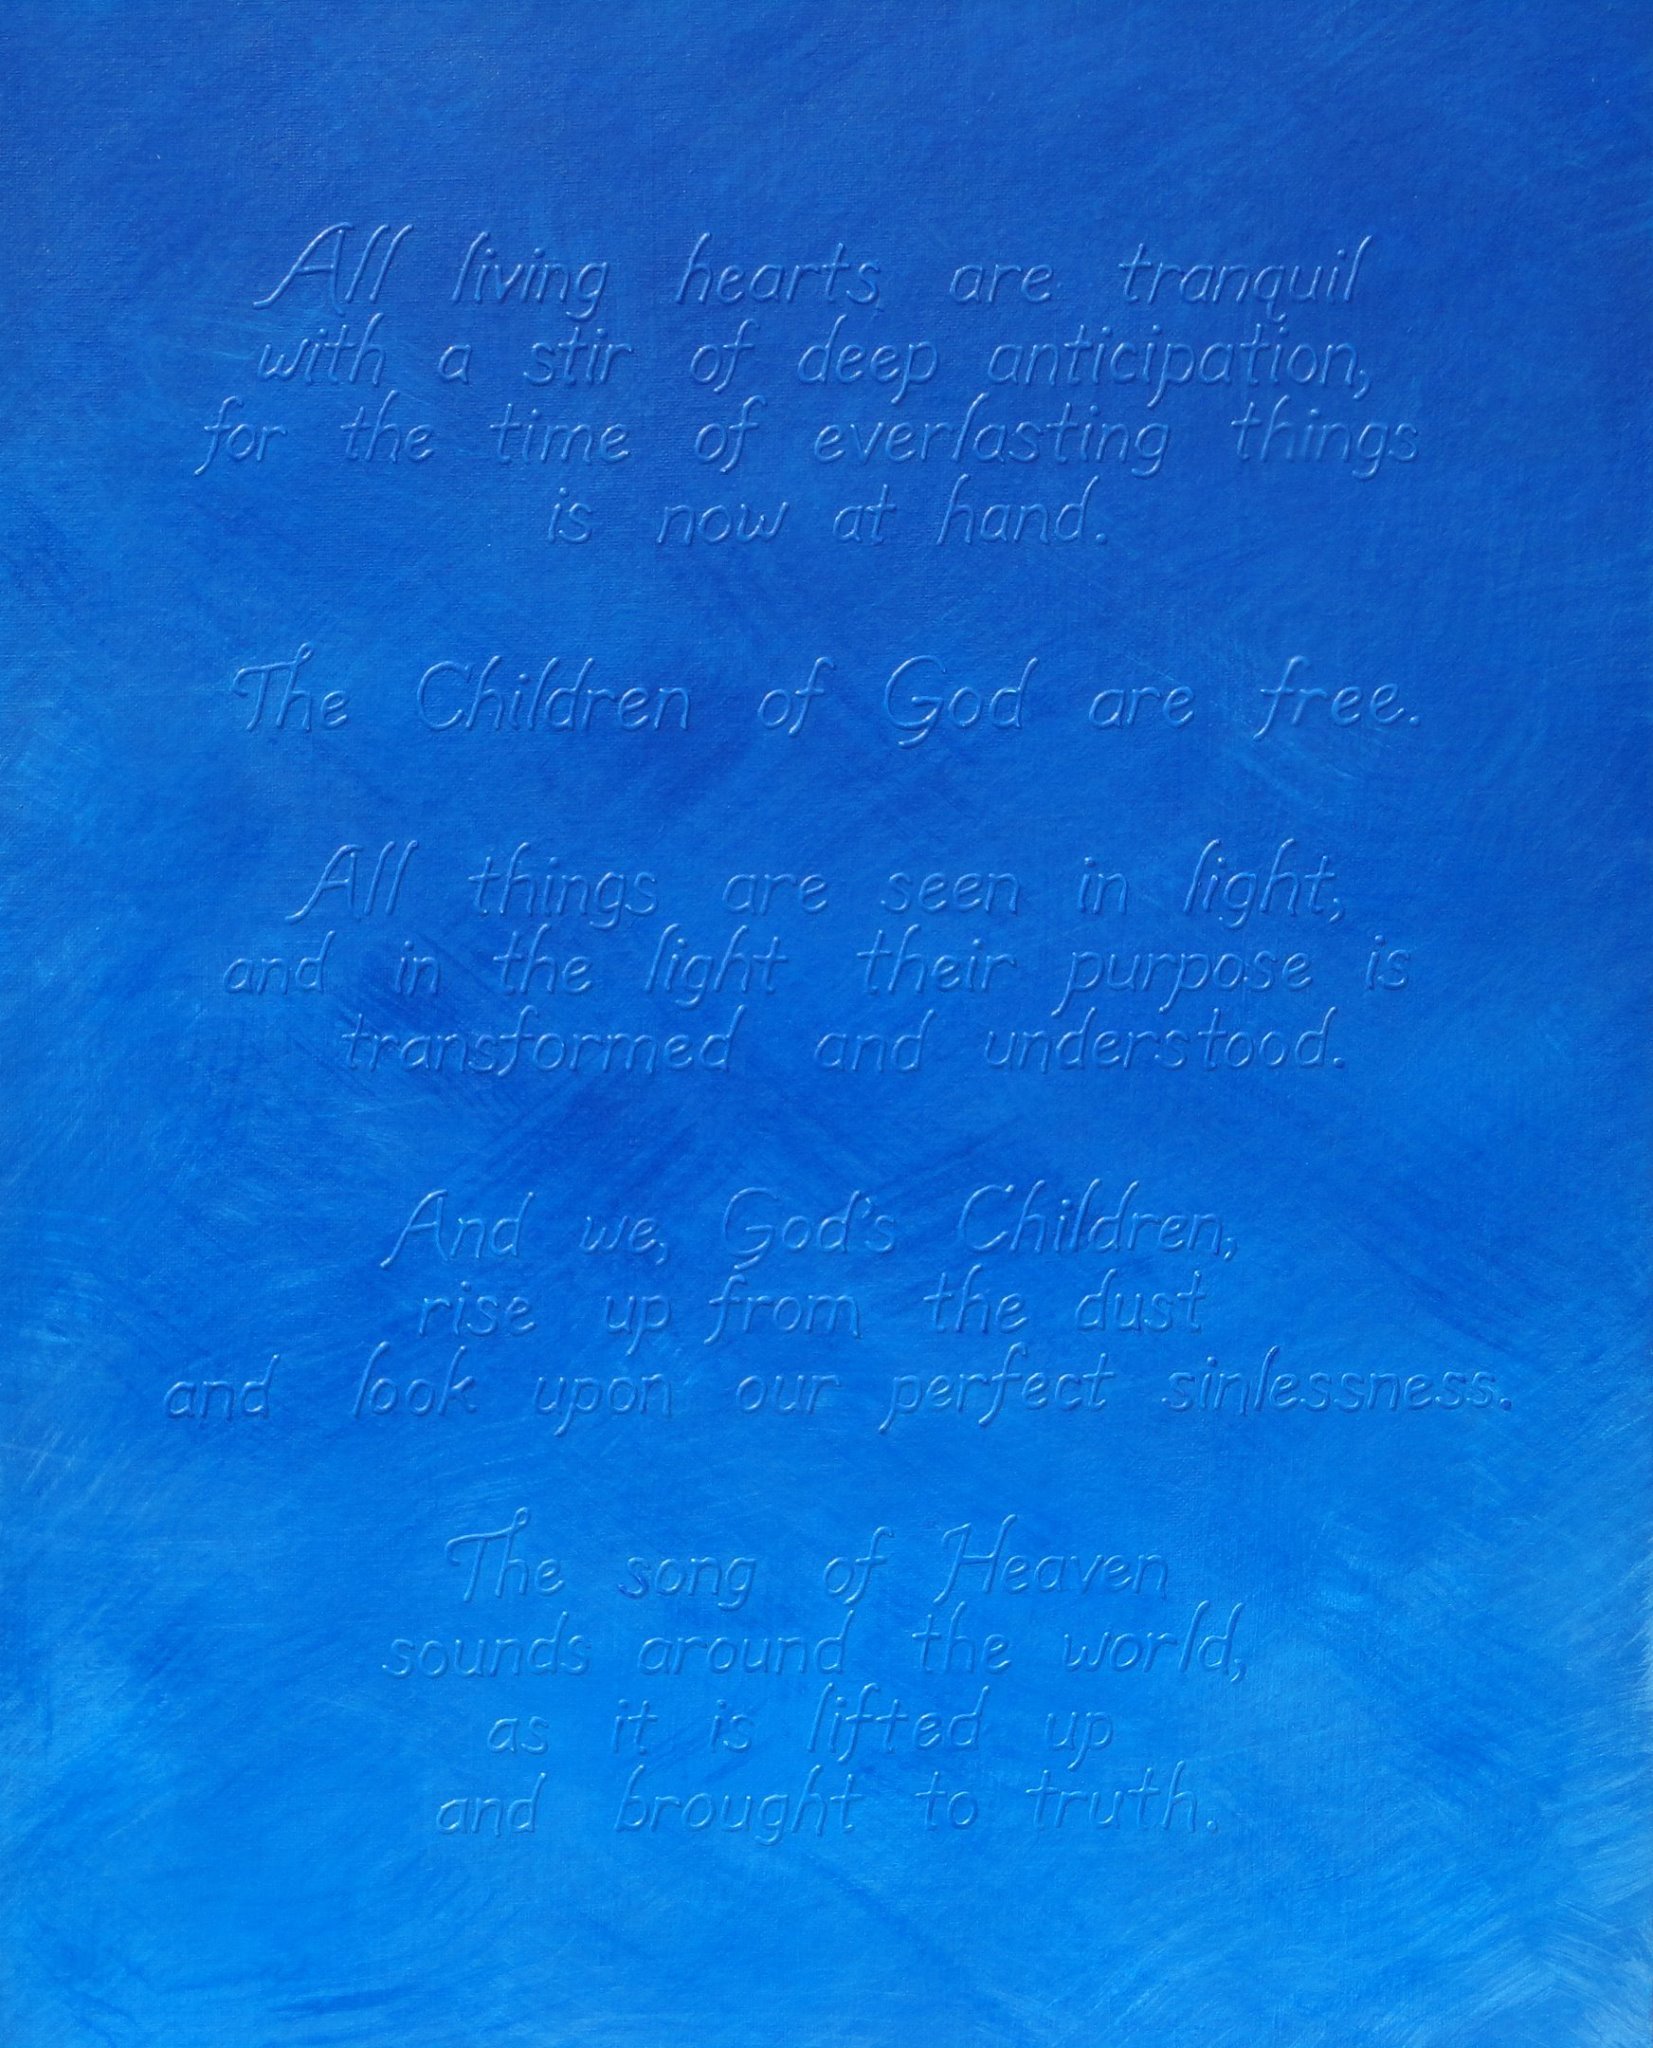 All living hearts are tranquil
with a stir of deep anticipation,
for the time of everlasting things
is now at hand.
The Children of God are free.
All things are seen in light,
and in the light their purpose is
transformed and understood.
And we, God's Children,
rise up from the dust
and look upon our perfect sinlessness.
The song of Heaven
sounds around the world,
as it is lifted up
and brought to truth.